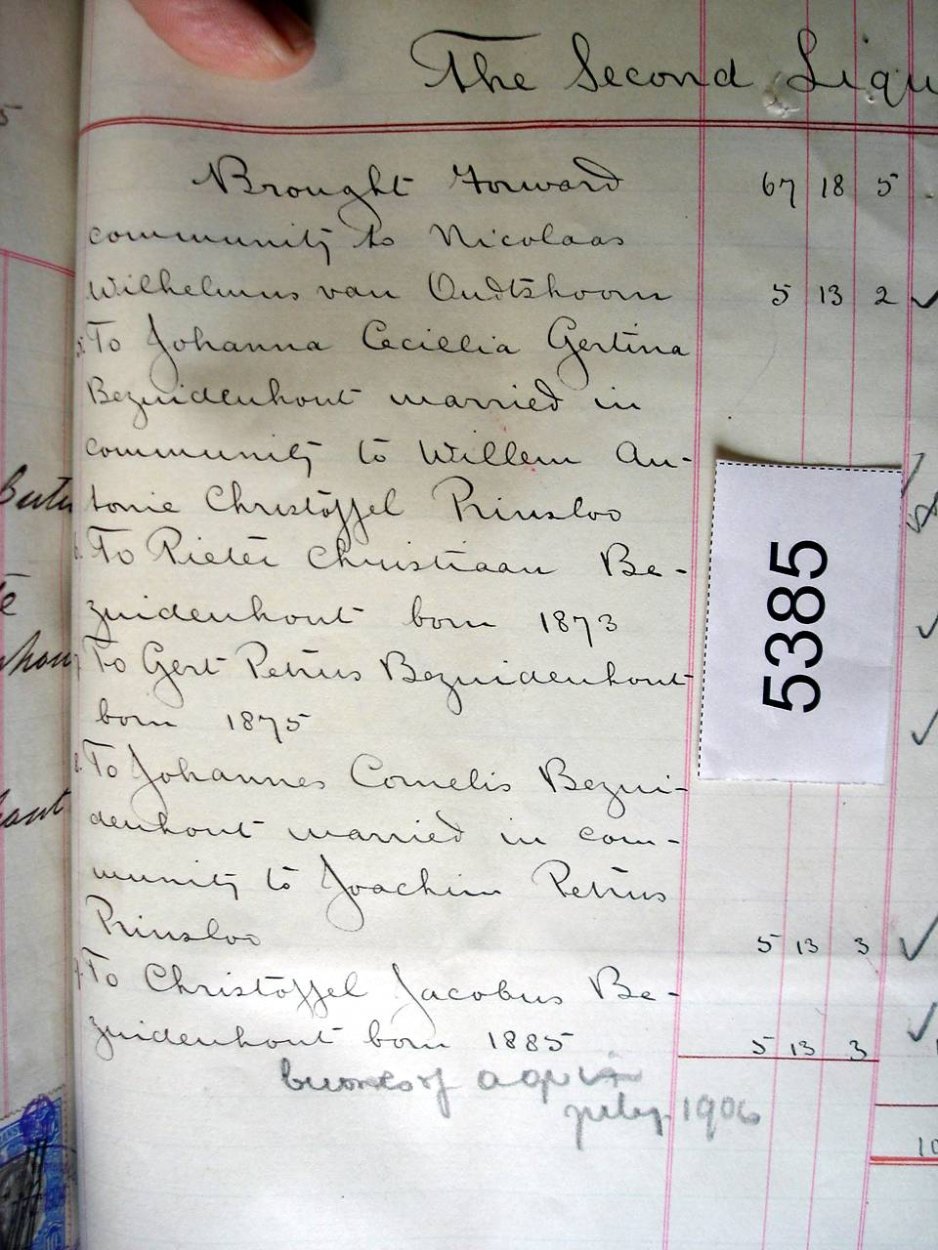 The Second Liqu
Brought Forward 67 18 5
community to Nicolaas
Wilhelmus van Oudtshoorn 5 13 2 ✓
5. To Johanna Cecillia Gertina
Bezuidenhout married in
community to Willem An-
tonie Christoffel Prinsloo
6. To Pieter Christiaan Be-
zuidenhout born 1873
7. To Gert Petrus Bezuidenhout
born 1875
8. To Johannes Cornelis Bezui-
denhout married in com-
munity to Joachim Petrus
Prinsloo 5 13 3 ✓
9. To Christoffel Jacobus Be-
zuidenhout born 1885 5 13 3
of
July 1906
10
5385